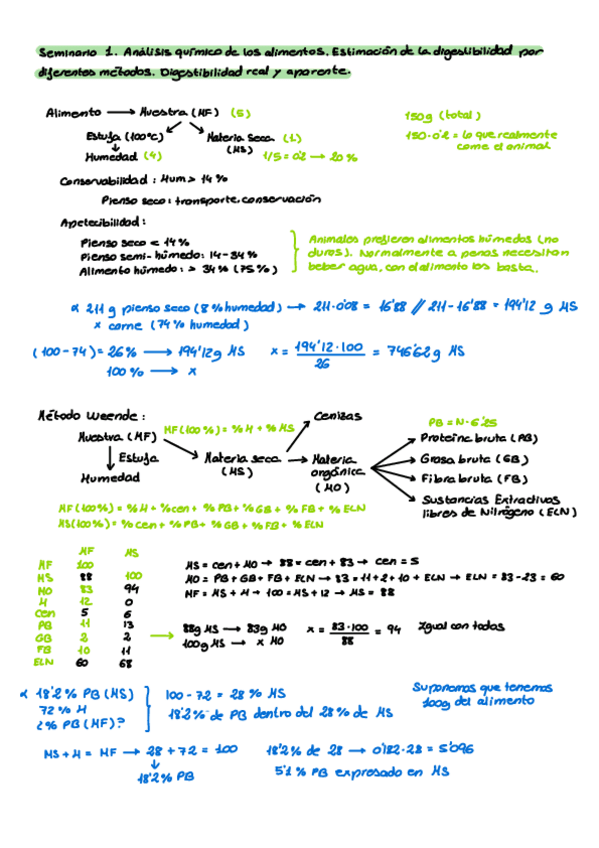 Seminario 1. Análisis químico de los alimentos. Estimación de la digestibilidad por
diferentes métodos. Digestibilidad real y aparente.
Alimento → Muestra (MF) (5)
150g (total)
Estufa (100ºC) Materia seca (1)
150·0'2 = lo que realmente
come el animal
Humedad (4) (MS) 1/5 = 0'2 → 20%
Conservabilidad: Hum > 14%
Pienso seco: transporte, conservación
Apetecibilidad:
Pienso seco < 14%
Pienso semi-húmedo: 14-34%
Alimento húmedo: > 34% (75%)
Animales prefieren alimentos húmedos (no
duros). Normalmente a penas necesitan
beber agua, con el alimento les basta.
211 g pienso seco (8% humedad) → 211·0'08 = 16'88 // 211-16'88 = 194'12 g MS
x carne (74% humedad)
(100-74) = 26% → 194'12g MS x = 194'12·100 / 26 = 746'62g MS
100% → x
Método Weende:
Muestra (MF) MF(100%) = %H + %MS
Cenizas
PB = N·6'25
Estufa
Humedad
Materia seca
(MS)
Materia
orgánica
(MO)
Proteína bruta (PB)
Grasa bruta (GB)
Fibra bruta (FB)
Sustancias Extractivas
libres de Nitrógeno (ELN)
MF(100%) = %H + %cen + %PB + %GB + %FB + %ELN
MS(100%) = %cen + %PB + %GB + %FB + %ELN
MF MS
MF 100
MS 88 100
MO 83 94
H 12 0
Cen 5 6
PB 11 13
GB 2 2
FB 10 11
ELN 60 68
MS = cen + MO → 88 = cen + 83 → cen = 5
MO = PB + GB + FB + ELN → 83 = 11+2+10+ELN → ELN = 83-23 = 60
MF = MS + H → 100 = MS + 12 → MS = 88
88g MS → 83g MO x = 83·100 / 88 = 94 Igual con todas
100g MS → x MO
18'2% PB (MS)
72% H
¿% PB (MF)?
100-72 = 28% MS
18'2% de PB dentro del 28% de MS
Suponemos que tenemos
100g del alimento
MS + H = MF → 28 + 72 = 100
18'2% PB
18'2% de 28 → 0'182·28 = 5'096
5'1% PB expresado en MS